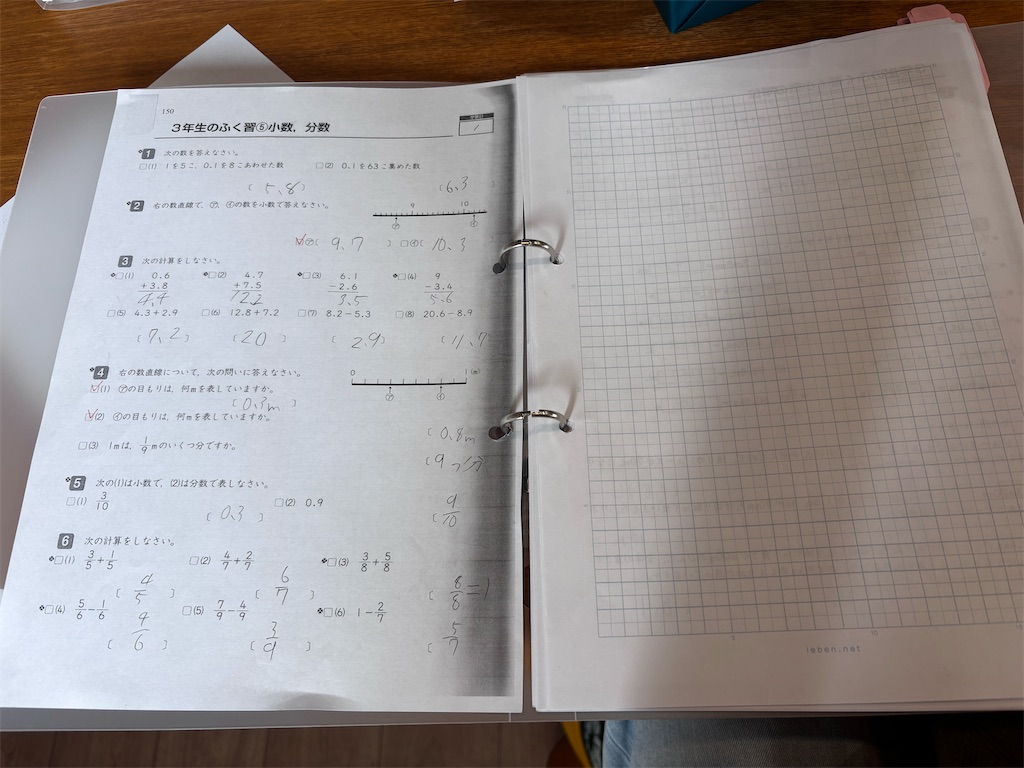 150
3年生のふく習⑤小数，分数
学習日
1 次の数を答えなさい。
□(1) 1を5こ，0.1を8こあわせた数 □(2) 0.1を63こ集めた数
[ 5.8 ] [ 6.3 ]
2 右の数直線で，㋐，㋑の数を小数で答えなさい。
9 10
㋐ ㋑
□㋐[ 9.7 ] □㋑[ 10.3
3 次の計算をしなさい。
□(1) 0.6 □(2) 4.7 □(3) 6.1 □(4) 9
+3.8 +7.5 -2.6 -3.4
4.4 12.2 3.5 5.6
□(5) 4.3+2.9 □(6) 12.8+7.2 □(7) 8.2-5.3 □(8) 20.6-8.9
[ 7.2 ] [ 20 ] [ 2.9 ] [ 11.7
4 右の数直線について，次の問いに答えなさい。
0 1 (m)
㋐ ㋑
□(1) ㋐の目もりは，何mを表していますか。
[ 0.3m ]
□(2) ㋑の目もりは，何mを表していますか。
[ 0.8m
□(3) 1mは，1/9 mのいくつ分ですか。
[ 9つ分
5 次の(1)は小数で，(2)は分数で表しなさい。
□(1) 3/10 □(2) 0.9
[ 0.3 ] [ 9/10
6 次の計算をしなさい。
□(1) 3/5+1/5 □(2) 4/7+2/7 □(3) 3/8+5/8
[ 4/5 ] [ 6/7 ] [ 8/8=1
□(4) 5/6-1/6 □(5) 7/9-4/9 □(6) 1-2/7
[ 4/6 ] [ 3/9 ] [ 5/7
5 10
ieben.net